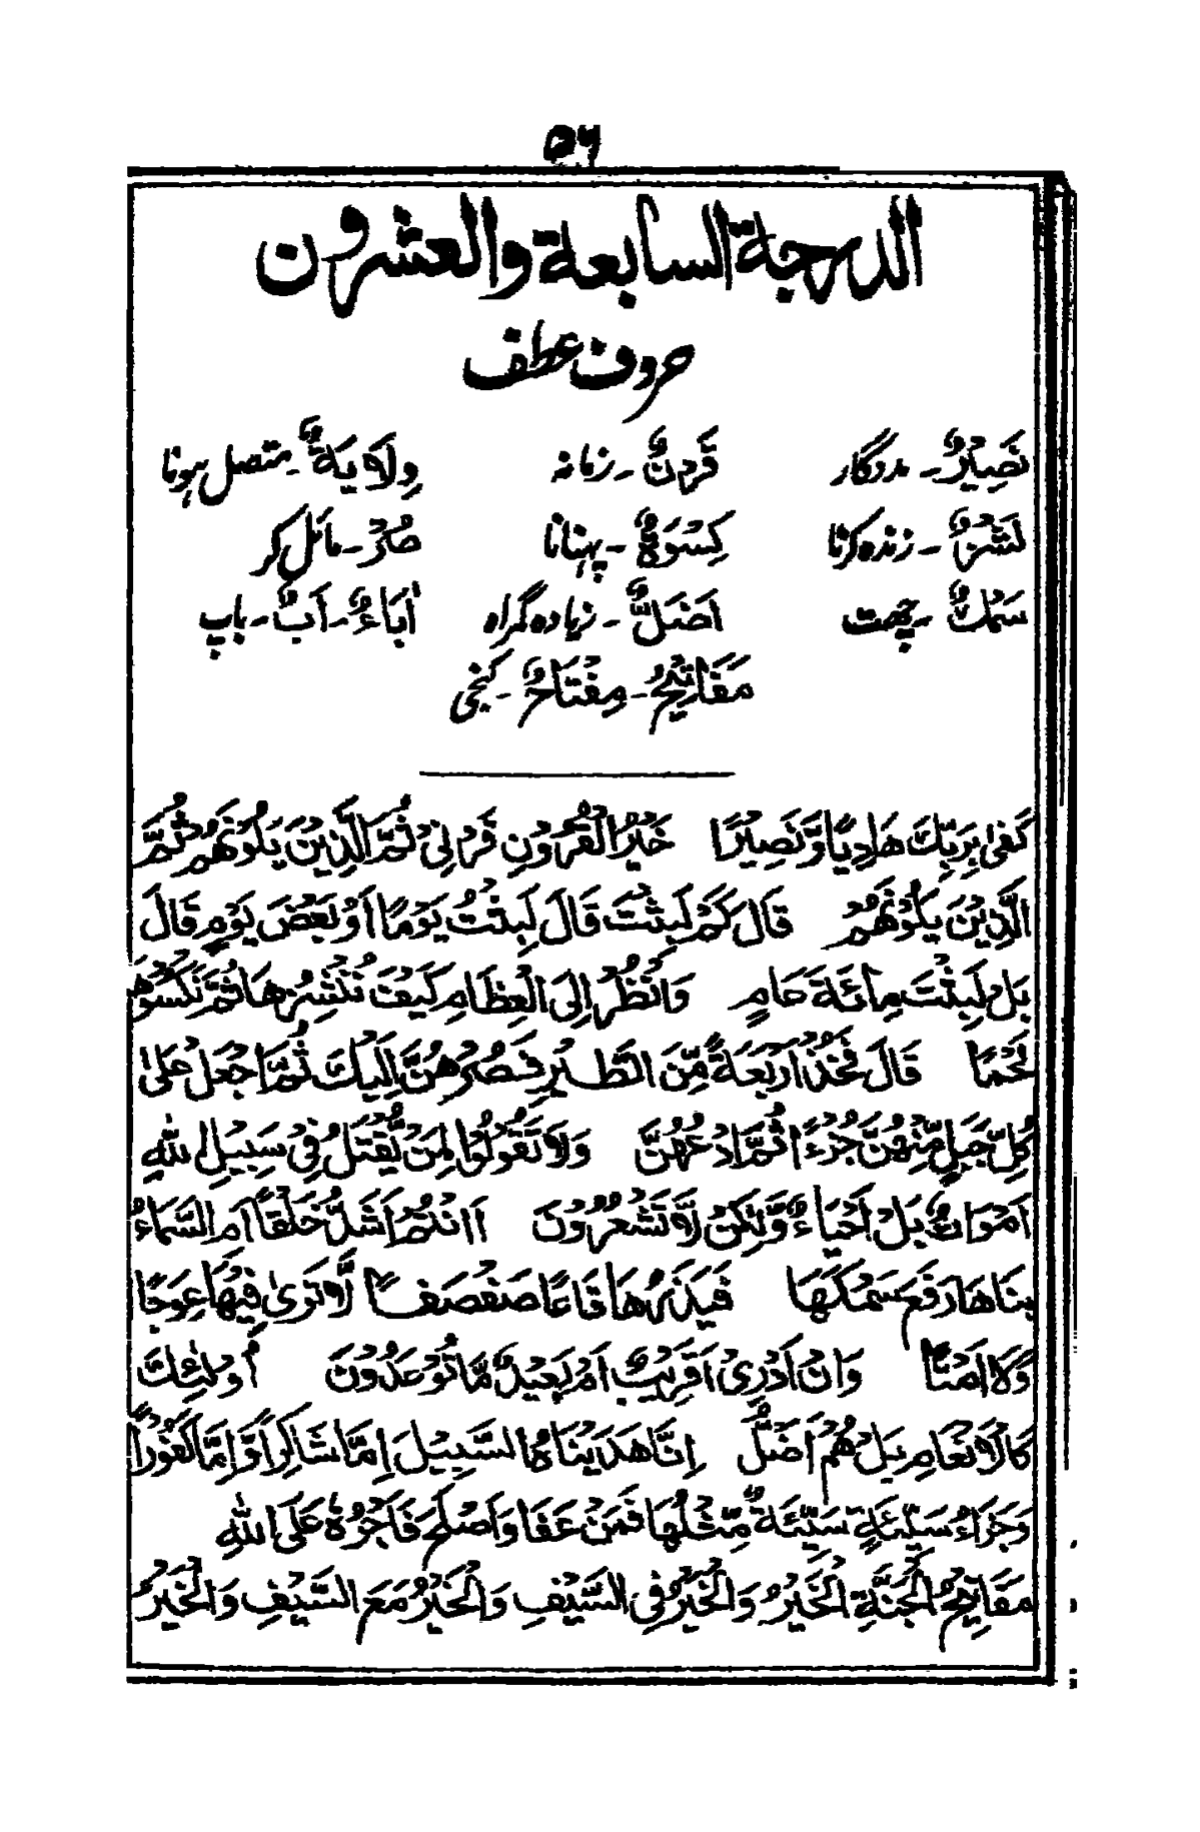 ۵۶
الدرجة السابعة والعشرون
حروف عطف
نَصِيْرٌ۔ مددگار قَرْنٌ۔ زمانہ وِلَايَةٌ۔ متصل ہونا
نَشْرٌ۔ زندہ کرنا كِسْوَةٌ۔ پہنانا صُرْ۔ مائل کر
سَمْكٌ۔ چھت اَضَلُّ۔ زیادہ گمراہ اٰبَاءٌ۔ اَبٌ۔ باپ
مَفَاتِيْحُ۔ مِفْتَاحٌ۔ کنجی
كَفىٰ بِرَبِّكَ هَادِيًا وَّنَصِيْرًا خَيْرُ الْقُرُوْنِ قَرْنِيْ ثُمَّ الَّذِيْنَ يَلُوْنَهُمْ ثُمَّ
الَّذِيْنَ يَلُوْنَهُمْ قَالَ كَمْ لَبِثْتَ قَالَ لَبِثْتُ يَوْمًا اَوْ بَعْضَ يَوْمٍ قَالَ
بَلْ لَبِثْتَ مِائَةَ عَامٍ وَانْظُرْ اِلَى الْعِظَامِ كَيْفَ نُنْشِزُهَا ثُمَّ نَكْسُوْهَا
لَحْمًا قَالَ فَخُذْ اَرْبَعَةً مِّنَ الطَّيْرِ فَصُرْهُنَّ اِلَيْكَ ثُمَّ اجْعَلْ عَلىٰ
كُلِّ جَبَلٍ مِّنْهُنَّ جُزْءًا ثُمَّ ادْعُهُنَّ وَلَا تَقُوْلُوْا لِمَنْ يُّقْتَلُ فِيْ سَبِيْلِ اللهِ
اَمْوَاتٌ بَلْ اَحْيَاءٌ وَّلٰكِنْ لَّا تَشْعُرُوْنَ اَاَنْتُمْ اَشَدُّ خَلْقًا اَمِ السَّمَاءُ
بنَاهَا رَفَعَ سَمْكَهَا فَيَذَرُهَا قَاعًا صَفْصَفًا لَّا تَرىٰ فِيْهَا عِوَجًا
وَّلَا اَمْتًا وَاِنْ اَدْرِيْ اَقَرِيْبٌ اَمْ بَعِيْدٌ مَّا تُوْعَدُوْنَ اُولٰئِكَ
كَالْاَنْعَامِ بَلْ هُمْ اَضَلُّ اِنَّا هَدَيْنَاهُ السَّبِيْلَ اِمَّا شَاكِرًا وَّاِمَّا كَفُوْرًا
وَجَزَاءُ سَيِّئَةٍ سَيِّئَةٌ مِّثْلُهَا فَمَنْ عَفَا وَاَصْلَحَ فَاَجْرُهُ عَلَى اللهِ
مَفَاتِيْحُ الْجَنَّةِ الْخَيْرُ وَالْخَيْرُ فِي السَّيْفِ وَالْخَيْرُ مَعَ السَّيْفِ وَالْخَيْرُ